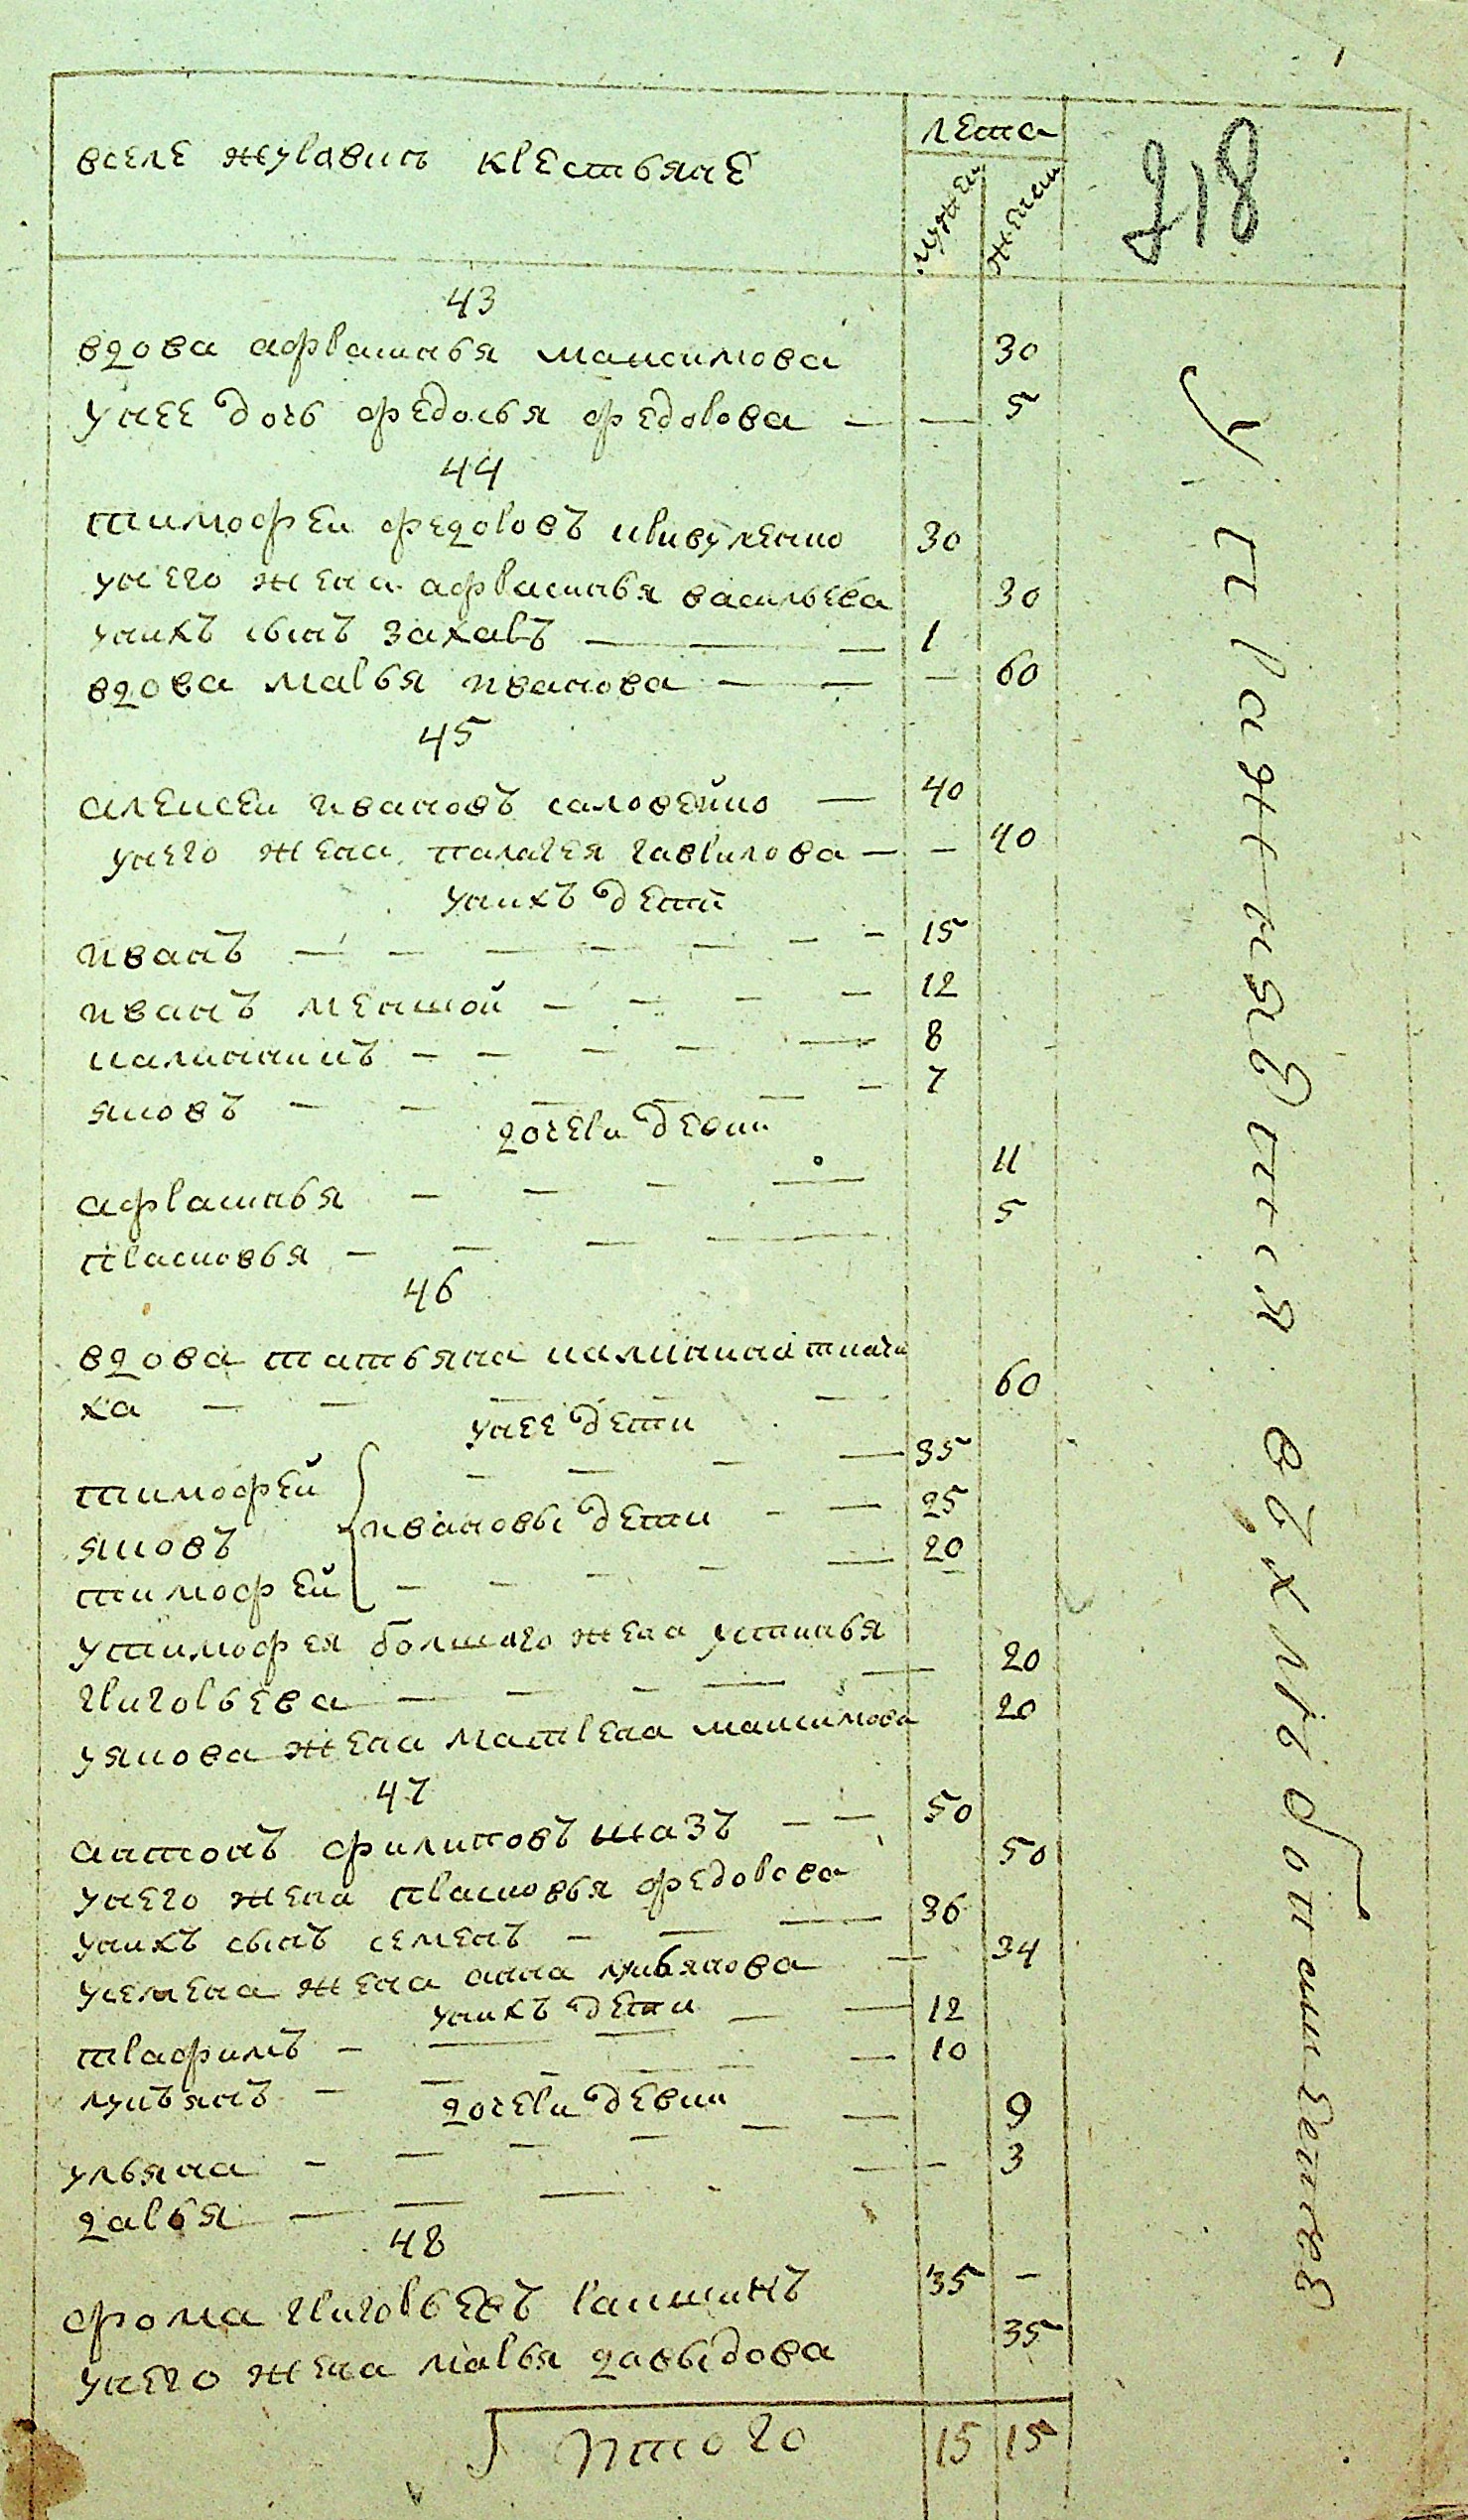 вселе журавки крестьяне
лета
мужеи
женски
218
43
вдова афрасинья максимова 30
унее дочь федосья федорова — — 5
44
тимофеи федоровъ кривуленко 30
унего жена афрасинья васильева 30
унихъ сынъ захаръ — — — 1
вдова марья иванова — — — 60
45
алексеи ивановъ соловейко — 40
унего жена палагея гаврилова — — 40
унихъ дети
иванъ — — — — — — — 15
иванъ меншой — — — — 12
калиникъ — — — — — 8
яковъ — — — — — — 7
дочери девки
афрасинья — — — — 11
прасковья — — — — 5
46
вдова татьяна калинина ткачи
ха — — — — — 60
унее дети
тимофей — — — — 35
яковъ ивановы дети — — 25
тимофей — — — — — 20
утимофея болшаго жена устинья
григорьева — — — — — 20
уякова жена матрена максимова 20
47
антонъ филиповъ — — 50
унего жена прасковья федорова 50
унихъ сынъ семенъ — — — 36
усемена жена анна лукьянова — 34
унихъ дети
трафимъ — — — — — 12
лукьянъ — — — — — — 10
дочери девки
ульяна — — — — — — 9
дарья — — — — — — 3
48
фома григорьевъ 35 —
унего жена марья давыдова 35
итого 15 15